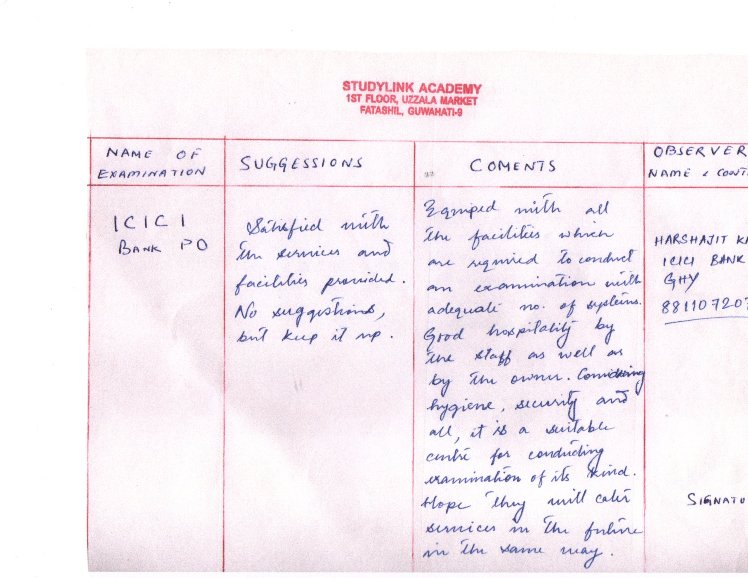 STUDYLINK ACADEMY
1ST FLOOR, UZZALA MARKET
FATASHIL, GUWAHATI-9
NAME OF
EXAMINATION
SUGGESSIONS
COMENTS
OBSERVER
NAME & CONT
ICICI
BANK PO
Satisfied with
the services and
facilities provided.
No suggestions,
but keep it up.
Equiped with all
the facilities which
are required to conduct
an examination with
adequate no. of systems.
Good hospitality by
the staff as well as
by the owner. Considering
hygiene, security and
all, it is a suitable
centre for conducting
examination of its kind.
Hope they will cater
services in the future
in the same way.
HARSHAJIT KA
ICICI BANK
GHY
881107207
SIGNATU